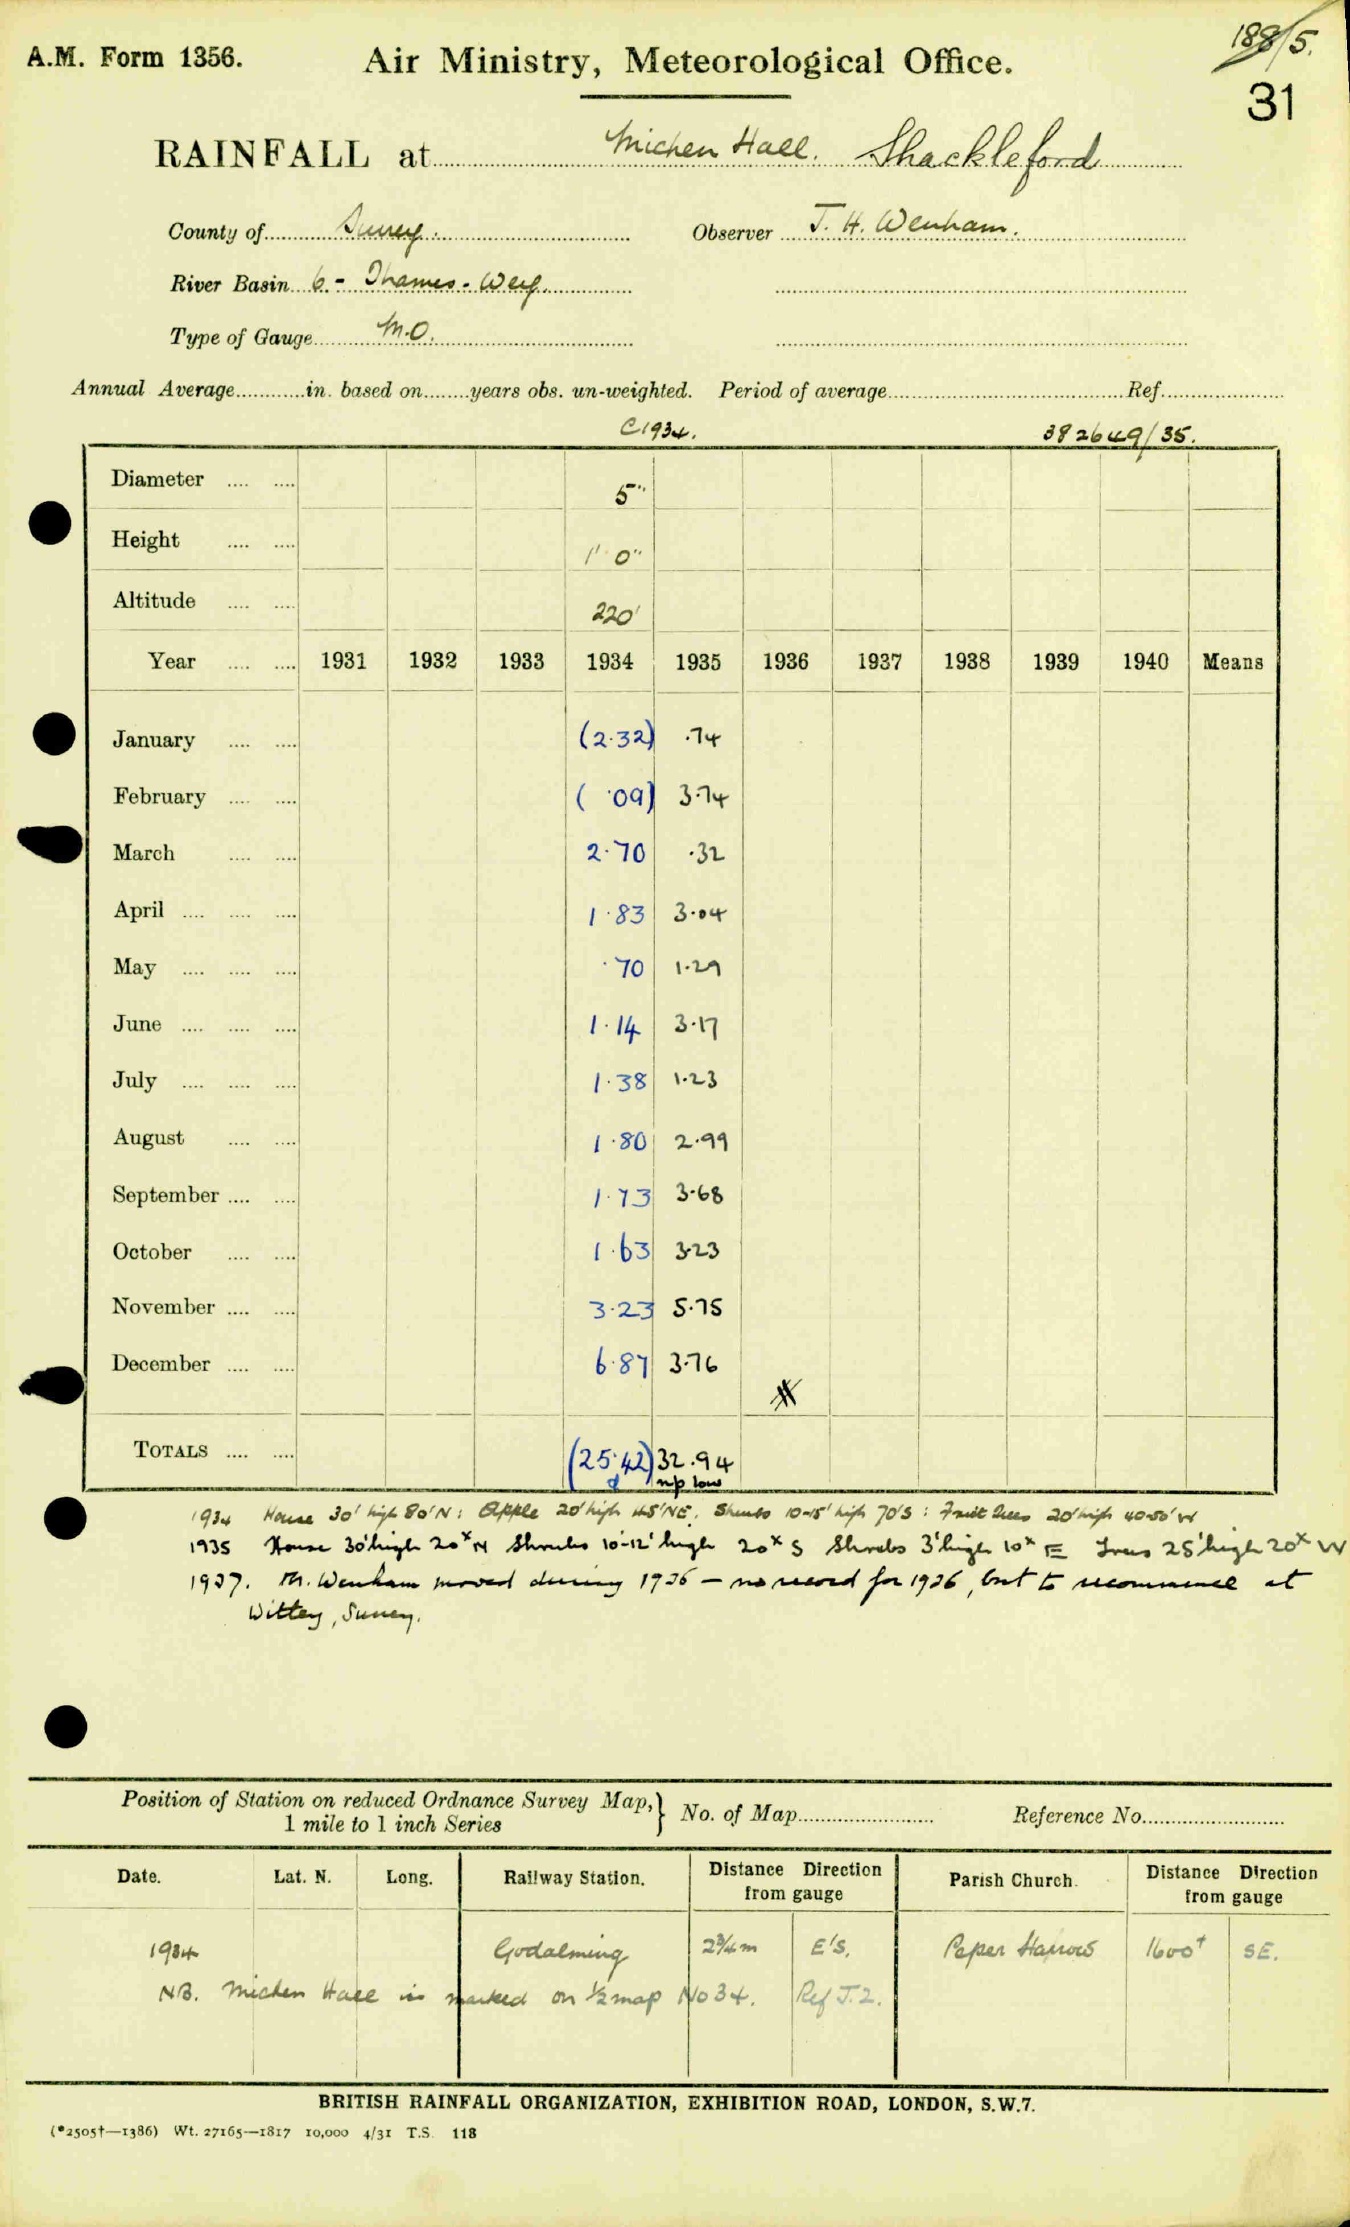 A.M. Form 1356.
Air Ministry, Meteorological Office.
188/5.
31
RAINFALL at Michen Hall. Shackleford
County of Surrey. Observer J. H. Wenham.
River Basin 6 - Thames - Wey.
Type of Gauge M.O.
Annual Average............in. based on........years obs. un-weighted. Period of average........ Ref........
C1934. 382649/35.
Diameter .... .... 5"
Height .... .... 1' 0"
Altitude .... .... 220'
Year .... .... 1931 1932 1933 1934 1935 1936 1937 1938 1939 1940 Means
January .... .... (2.32) .74
February .... .... ( .09) 3.74
March .... .... 2.70 .32
April .... .... .... 1.83 3.04
May .... .... .... .70 1.29
June .... .... .... 1.14 3.17
July .... .... .... 1.38 1.23
August .... .... 1.80 2.99
September .... .... 1.73 3.68
October .... .... 1.63 3.23
November .... .... 3.23 5.75
December .... .... 6.87 3.76
TOTALS .... .... (25.42) 32.94
d np low
1934 House 30' high 80' N: Apple 20' high 45' NE. Shrubs 10-15' high 70' S: Fruit Trees 20' high 40-50' W
1935 House 30' high 20x N Shrubs 10-12' high 20x S Shrubs 3' high 10x E Trees 25' high 20x W
1937. Mr. Wenham moved during 1936 — no record for 1936, but to recommence at
Witley, Surrey.
Position of Station on reduced Ordnance Survey Map, } No. of Map........ Reference No........
1 mile to 1 inch Series
Date. Lat. N. Long. Railway Station. Distance Direction from gauge Parish Church. Distance Direction from gauge
1934 Godalming 2¾ m E'S. Peper Harrow 1600+ SE.
NB. Michen Hall is marked on ½ map No 34. Ref J.2.
BRITISH RAINFALL ORGANIZATION, EXHIBITION ROAD, LONDON, S.W.7.
(*2505†—1386) Wt. 27165—1817 10,000 4/31 T.S. 118